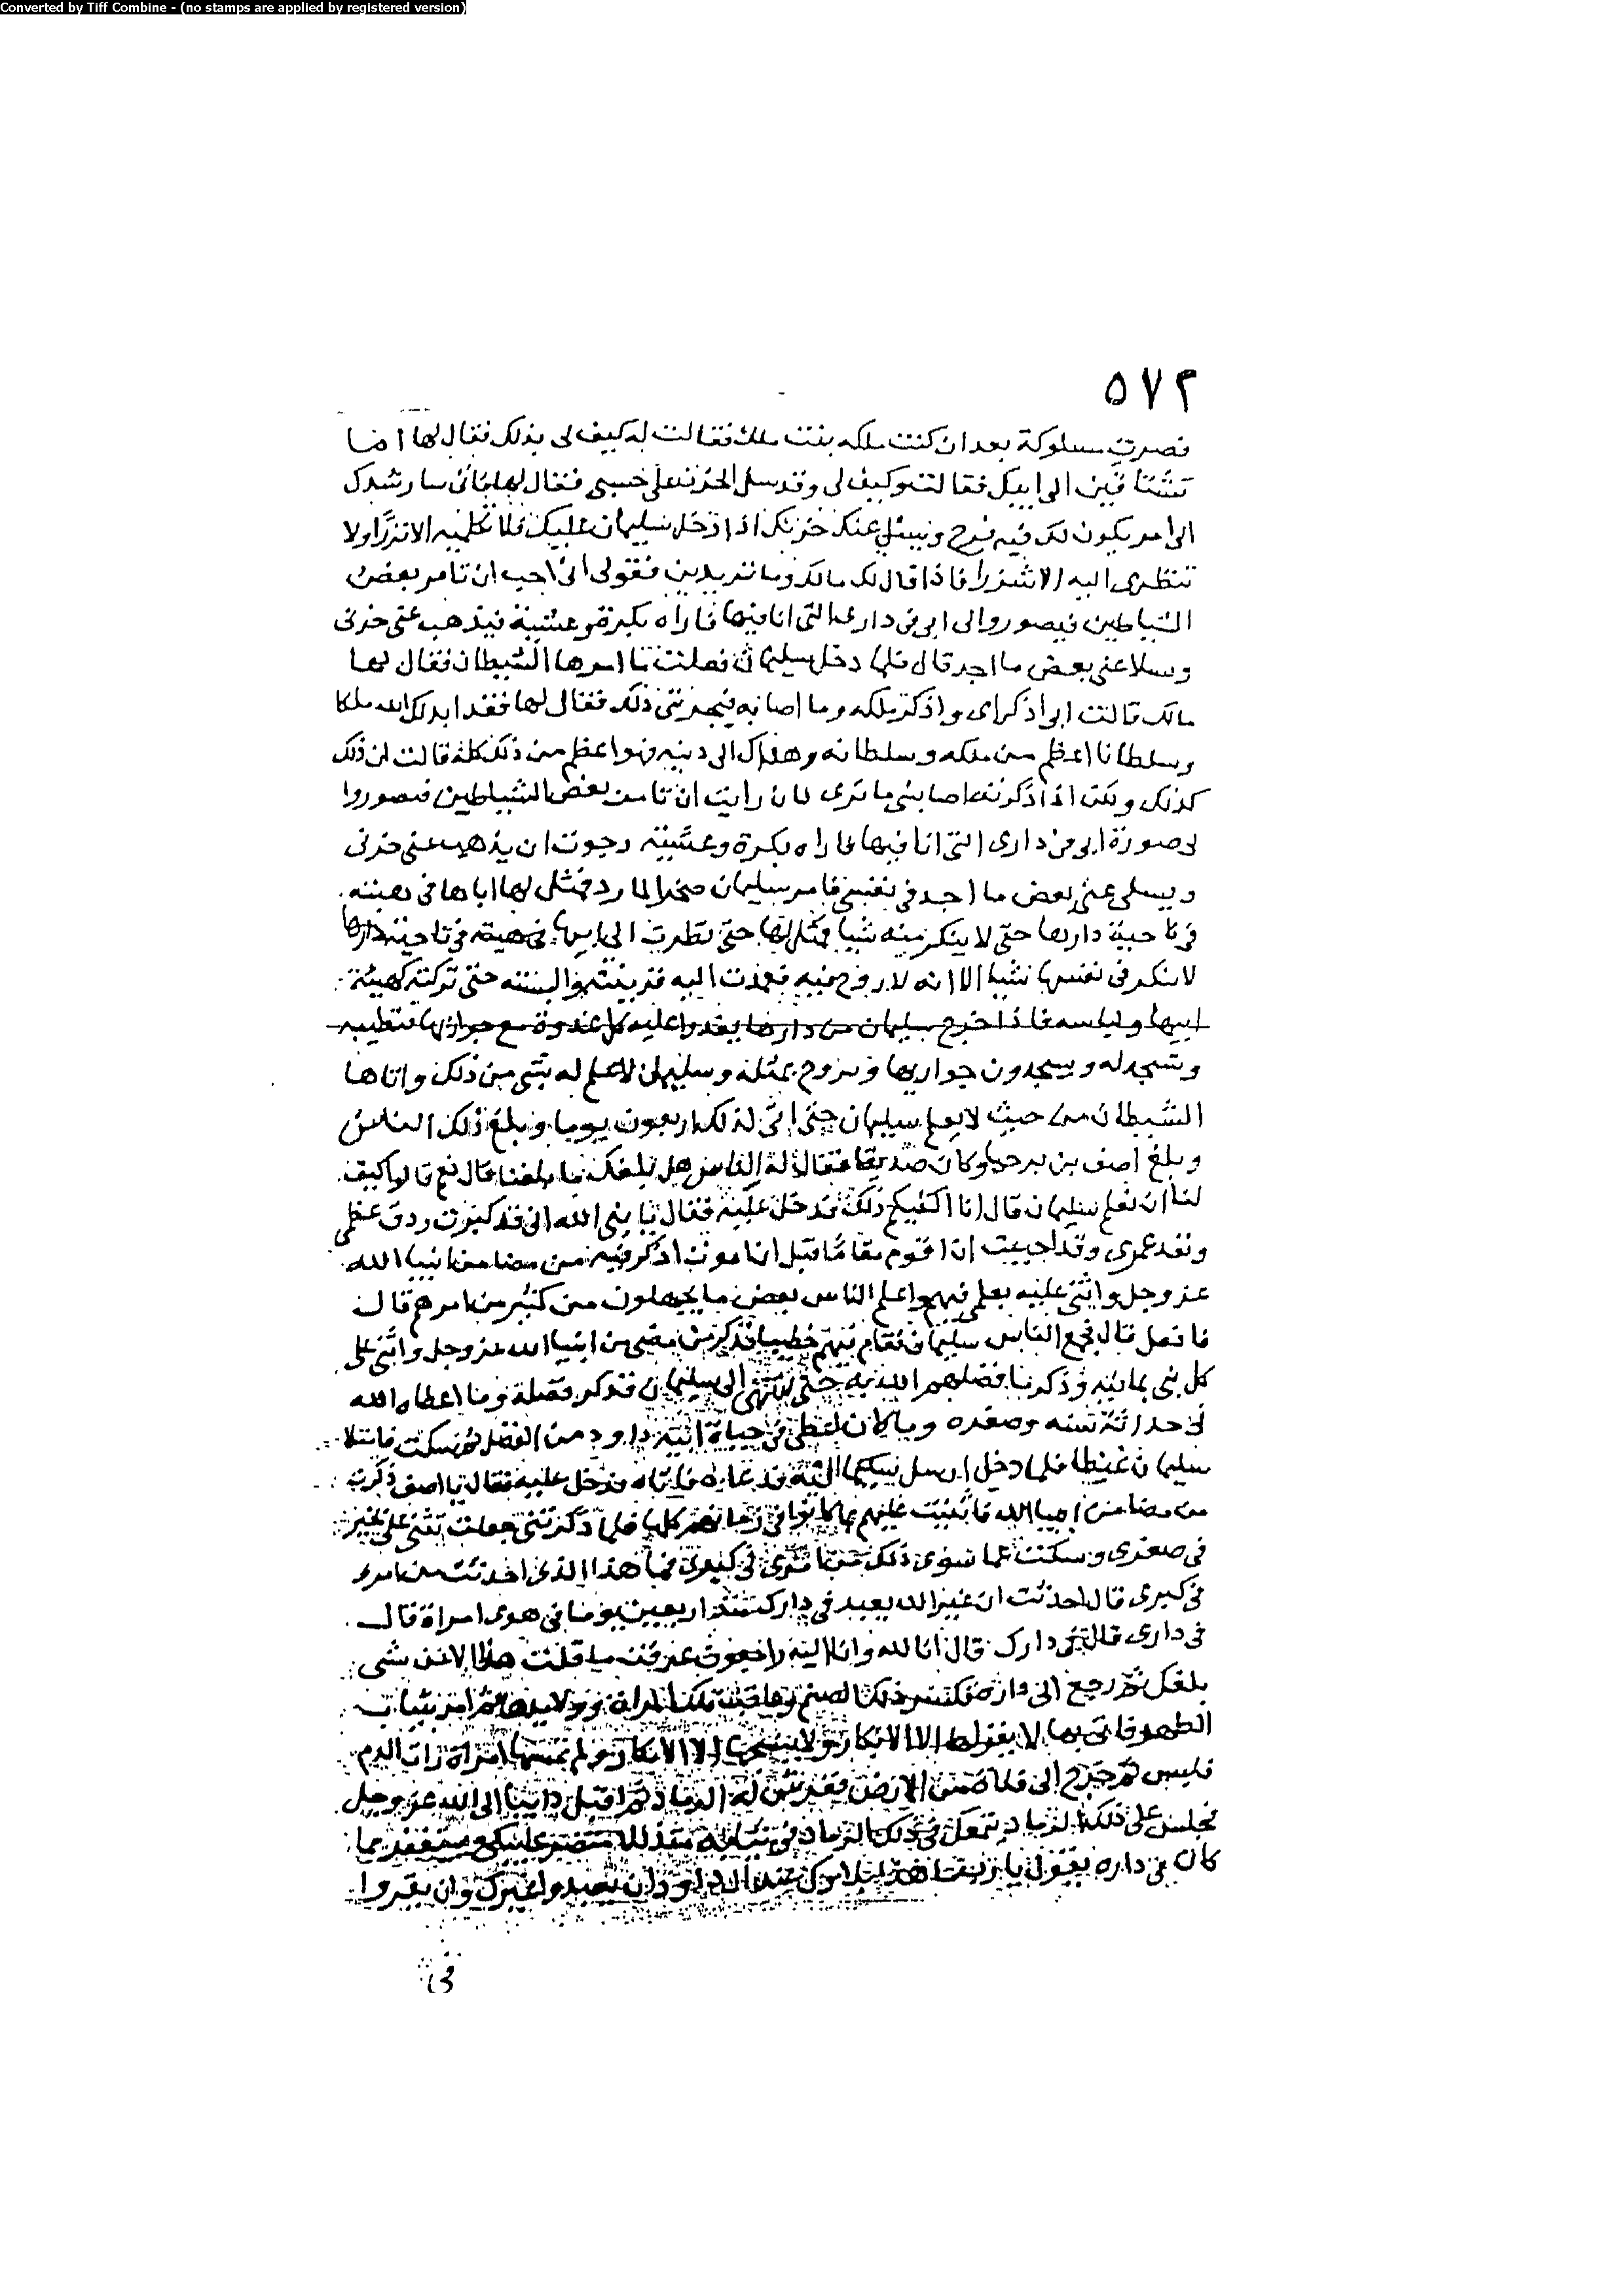 Converted by Tiff Combine - (no stamps are applied by registered version)
٥٧٢
فصرت مملوكة بعد ان كنت ملكه بنت ملك فقالت له كيف لى بذلك فقال لها اما
تشتاقين الى ابيك فقالت وكيف لى وقد سل الحزن على جسمى فقال لها فانى سارشدك
الى امر يكون لك فيه فرح ويسلى عنك حزنك اذا دخل سليمان عليك فلا تكلميه الا نزرا ولا
تنظرى اليه الا شزرا فاذا قال لك مالك وما تريدين فقولى انى احب ان تامر بعض
الشياطين فيصوروا لى ابى فى دارى التى انا فيها فاراه بكرة وعشية فيذهب عنى حزنى
ويسلا عنى بعض ما اجد قال فلما دخل سليمان فعلت ما امرها الشيطان فقال لها
مالك قالت ابى اذكراى واذكر ملكه وما اصابه فيحزننى ذلك فقال لها فقد ابدلك الله ملكا
وسلطانا اعظم من ملكه وسلطانه وهداك الى دينه فهو اعظم من ذلك كله قالت ان ذلك
كذلك ولكن اذا ذكرته اصابنى ما ترى فان رايت ان تامر بعض الشياطين فيصوروا
لى صورة ابى فى دارى التى انا فيها فاراه بكرة وعشية رجوت ان يذهب عنى حزنى
ويسلى عنى بعض ما اجد فى نفسى فامر سليمان صخر المارد فمثل لها اباها فى هيئته
فى ناحية دارها حتى لا ينكر منه شيا فمثل لها حتى نظرت الى ابيها فى هيئته فى ناحية دارها
لا تنكر فى نفسها شيا الا انه لا روح فيه فعمدت اليه فزينته والبسته حتى تركته كهيئة
ابيها ولباسه فاذا خرج سليمان من دارها يغدوا عليه كل غدوة مع جواريها فتطيبه
وتسجد له ويسجدون جواريها وتروح بمثله وسليمان لا علم له بشى من ذلك واتاها
الشيطان من حيث لا يعلم سليمان حتى اتى لذلك اربعون يوما وبلغ ذلك الناس
وبلغ اصف بن برخيا وكان صديقا فقال له الناس هل بلغك ما بلغنا قال نعم قالوا كيف
لنا ان نعلم سليمان قال انا اكفيكم ذلك فدخل عليه فقال يا نبى الله انى قد كبرت ودق عظمى
ونفد عمرى وقد احببت ان اقوم مقاما قبل ان اموت اذكر فيه من مضا من انبيا الله
عز وجل واثنى عليه بعلمى فيهم واعلم الناس بعض ما يجهلون من كثير من امرهم قال
فافعل قال فجمع الناس سليمان فقام فيهم خطيبا فذكر من مضى من انبيا الله عز وجل واثنى على
كل نبى بما فيه وذكر ما فضلهم الله به حتى انتهى الى سليمان فذكر فضله وما اعطاه الله
فى حداثة سنه وصغره وما كان اعطى فى حياة ابيه داود من الفضل ثم سكت فامتلا
سليمان غيظا فلما دخل ارسل سليمان اليه فدعاه فاتاه فدخل عليه فقال يا اصف ذكرت
من مضا من انبيا الله فاثنيت عليهم بما كانوا فى زمانهم كله فلما ذكرتنى جعلت تثنى على بخير
فى صغرى وسكت عما سوى ذلك من امرى فى كبرى فما هذا الذى احدثت من امرى
فى كبرى قال احدثت ان غير الله يعبد فى دارك منذ اربعين يوما فى هوى امراة قال
فى دارى قال فى دارك قال انا لله وانا اليه راجعون عرفت ما قلت هذا الا عن شى
بلغك ثم رجع الى داره فكسر ذلك الصنم وعاقب تلك المراة وولايدها ثم امر بثياب
الطهر فاتى بها لا يغزلها الا الابكار ولا ينسجها الا الابكار ولم تمسها امراة رات الدم
فلبس ثم خرج الى فلاة من الارض ففرش له الرماد ثم اقبل تايبا الى الله عز وجل
فجلس على ذلك الرماد وتمعك فى ذلك الرماد فى ثيابه متذللا متضرعا يبكى ويستغفر مما
كان فى داره يقول يا رب ما هذا بلاوك عند ال داود ان يعبدوا غيرك وان يقروا
فى